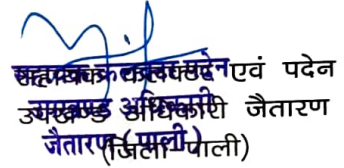 सहायक कलक्टर एवं पदेन
उपखण्ड अधिकारी जैतारण
जैतारण (पाली)
(जिला-पाली)